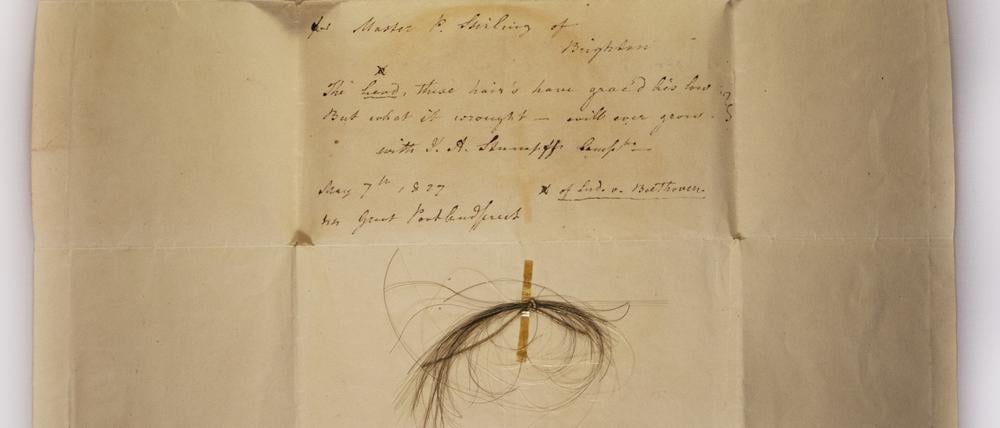 for Master P. Stirling of
Brighton
x
The head, these hair's have grac'd lies low
But what it wrought – will ever grow.
with J. A. Stumpff's Compts –
May 7th 1827
x of Lud. v. Beethoven.
Great Portlandstreet